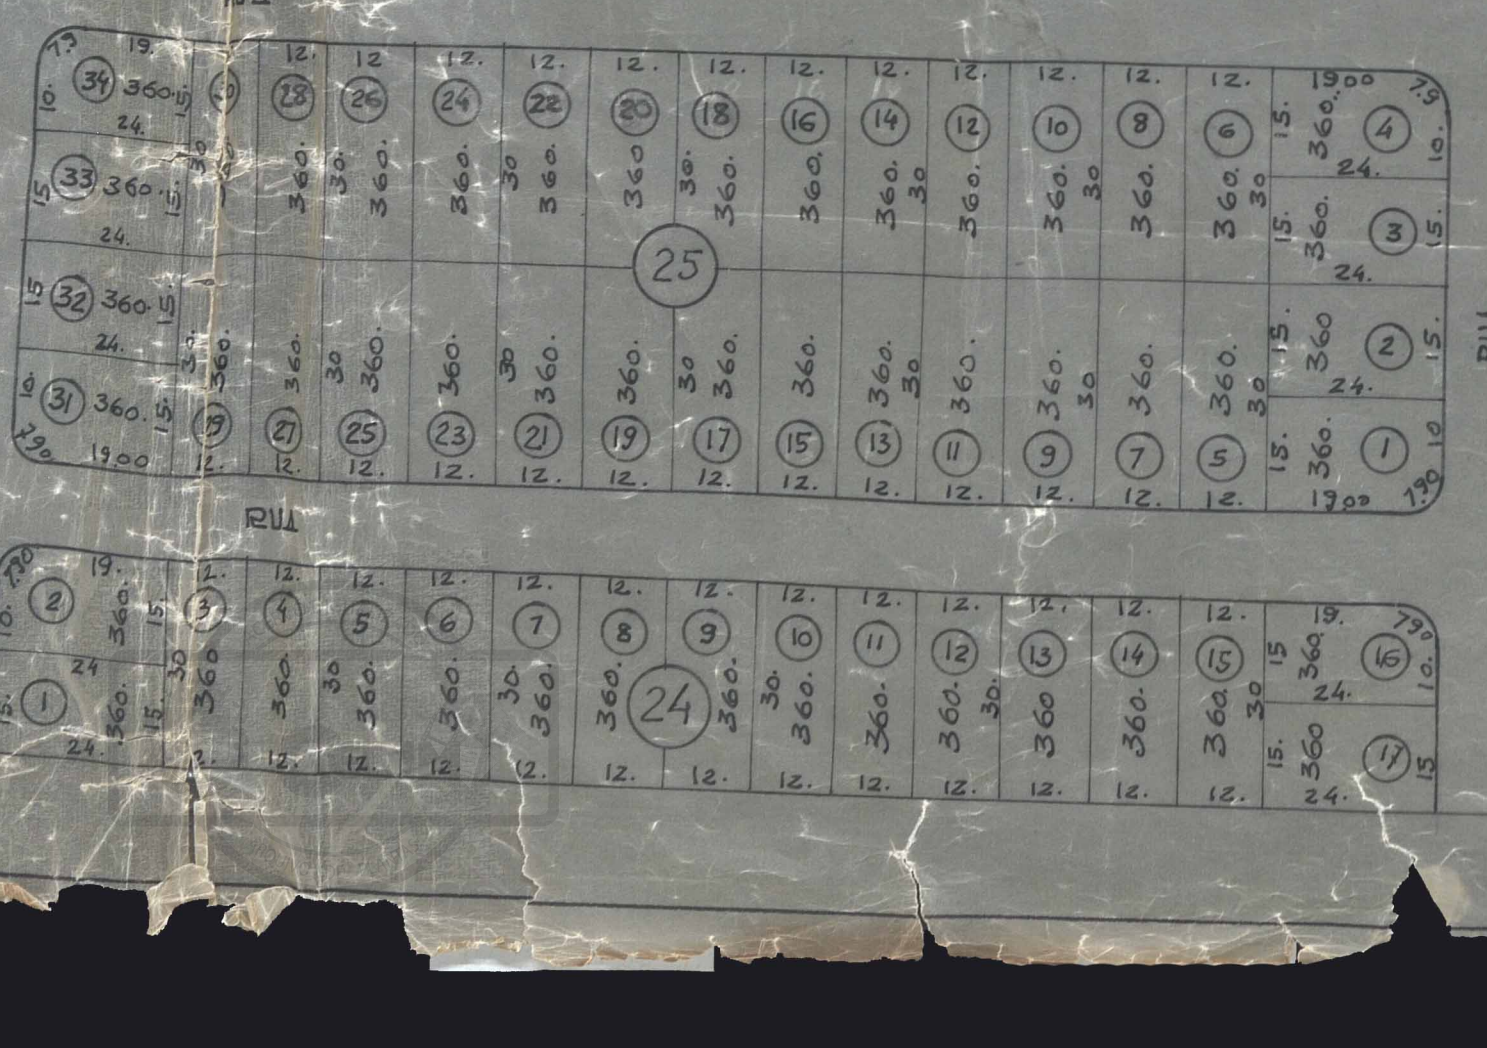 79 19. 12. 12 12. 12. 12. 12. 12. 12. 12. 12. 12. 12. 1900 7.9
34 360. 15. 28 26 24 22 20 18 16 14 12 10 8 6 15. 360. 4
10. 24. 30 360. 30. 360. 360. 30 360. 360 30. 360. 360. 360. 30 360. 360. 30 360. 360. 30 24. 10.
33 360. 15. 15. 360. 3 15.
15 24. 25 24.
15 32 360. 15. 15. 360 2 15.
24. 30. 360. 360. 30 360. 360. 30 360. 360. 30 360. 360. 360. 30 360. 360. 30 360. 360. 30 24.
10. 31 360. 15. 29 27 25 23 21 19 17 15 13 11 9 7 5 15. 360. 1 10
7.90 19.00 12. 12. 12. 12. 12. 12. 12. 12. 12. 12. 12. 12. 12. 1900 7.90
RUA
7.90 19. 12. 12. 12. 12. 12. 12. 12. 12. 12. 12. 12. 12. 12. 19. 790
10. 2 360. 15. 3 4 5 6 7 8 9 10 11 12 13 14 15 15 360. 16 10.
24 30 360 360. 30 360. 360. 30. 360. 360. 24 360. 30. 360. 360. 360. 30. 360 360. 360. 30 24.
15. 1 360. 15. 15. 360 17 15
24. 2. 12. 12. 12. 12. 12. 12. 12. 12. 12. 12. 12. 12. 24.